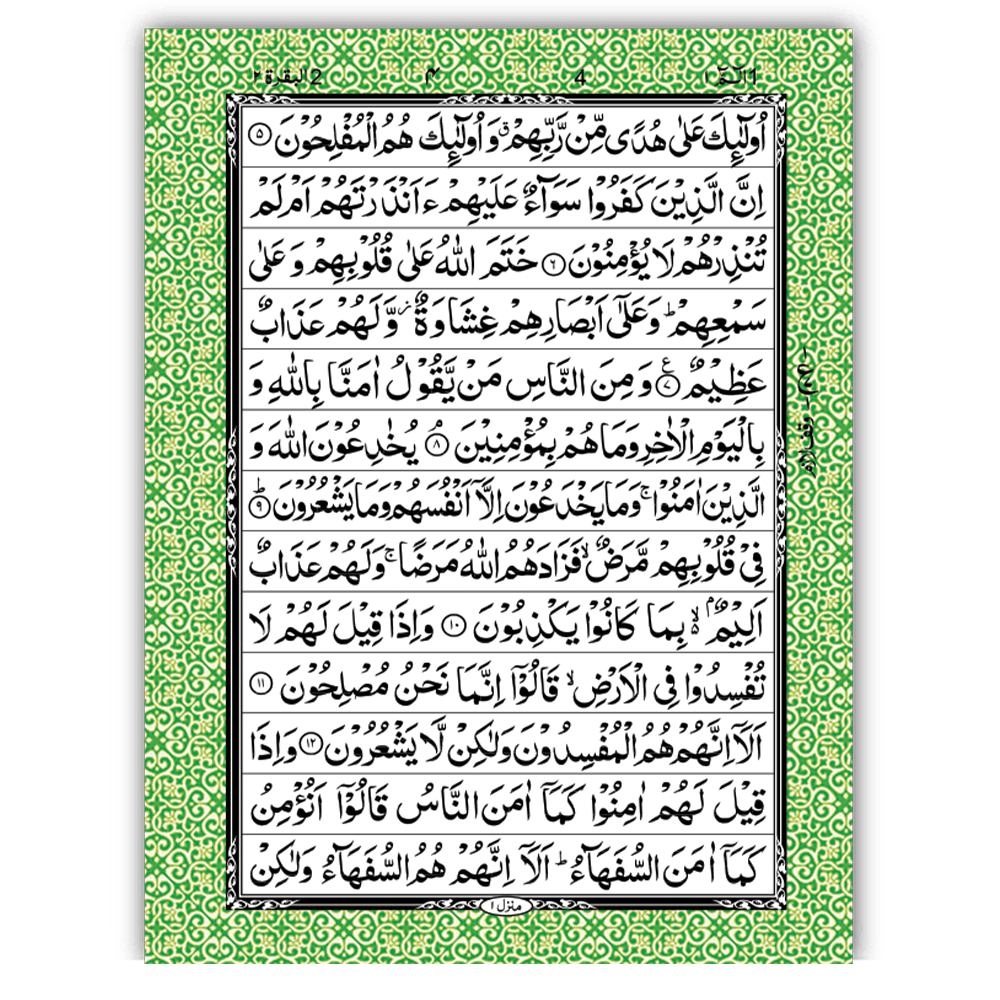 الٓمّٓ ١ 1 4 ۴ البقرة ٢ 2
اُولٰٓئِكَ عَلٰى هُدًى مِّنْ رَّبِّهِمْ ۗ وَ اُولٰٓئِكَ هُمُ الْمُفْلِحُوْنَ ﴿۵﴾
اِنَّ الَّذِيْنَ كَفَرُوْا سَوَآءٌ عَلَيْهِمْ ءَاَنْذَرْتَهُمْ اَمْ لَمْ
تُنْذِرْهُمْ لَا يُؤْمِنُوْنَ ﴿۶﴾ خَتَمَ اللّٰهُ عَلٰى قُلُوْبِهِمْ وَ عَلٰى
سَمْعِهِمْ ؕ وَ عَلٰٓى اَبْصَارِهِمْ غِشَاوَةٌ ؗ وَّ لَهُمْ عَذَابٌ
عَظِيْمٌ ﴿۷﴾ ع وَ مِنَ النَّاسِ مَنْ يَّقُوْلُ اٰمَنَّا بِاللّٰهِ وَ
بِالْيَوْمِ الْاٰخِرِ وَ مَا هُمْ بِمُؤْمِنِيْنَ ۘ﴿۸﴾ يُخٰدِعُوْنَ اللّٰهَ وَ
الَّذِيْنَ اٰمَنُوْا ۚ وَ مَا يَخْدَعُوْنَ اِلَّاۤ اَنْفُسَهُمْ وَ مَا يَشْعُرُوْنَ ؕ﴿۹﴾
فِيْ قُلُوْبِهِمْ مَّرَضٌ ۙ فَزَادَهُمُ اللّٰهُ مَرَضًا ۚ وَ لَهُمْ عَذَابٌ
اَلِيْمٌۢ ۙ۬ بِمَا كَانُوْا يَكْذِبُوْنَ ﴿۱۰﴾ وَ اِذَا قِيْلَ لَهُمْ لَا
تُفْسِدُوْا فِي الْاَرْضِ ۙ قَالُوْۤا اِنَّمَا نَحْنُ مُصْلِحُوْنَ ﴿۱۱﴾
اَلَاۤ اِنَّهُمْ هُمُ الْمُفْسِدُوْنَ وَ لٰكِنْ لَّا يَشْعُرُوْنَ ﴿۱۲﴾ وَ اِذَا
قِيْلَ لَهُمْ اٰمِنُوْا كَمَاۤ اٰمَنَ النَّاسُ قَالُوْۤا اَنُؤْمِنُ
كَمَاۤ اٰمَنَ السُّفَهَآءُ ؕ اَلَاۤ اِنَّهُمْ هُمُ السُّفَهَآءُ وَ لٰكِنْ
وقف لازم
منزل ۱